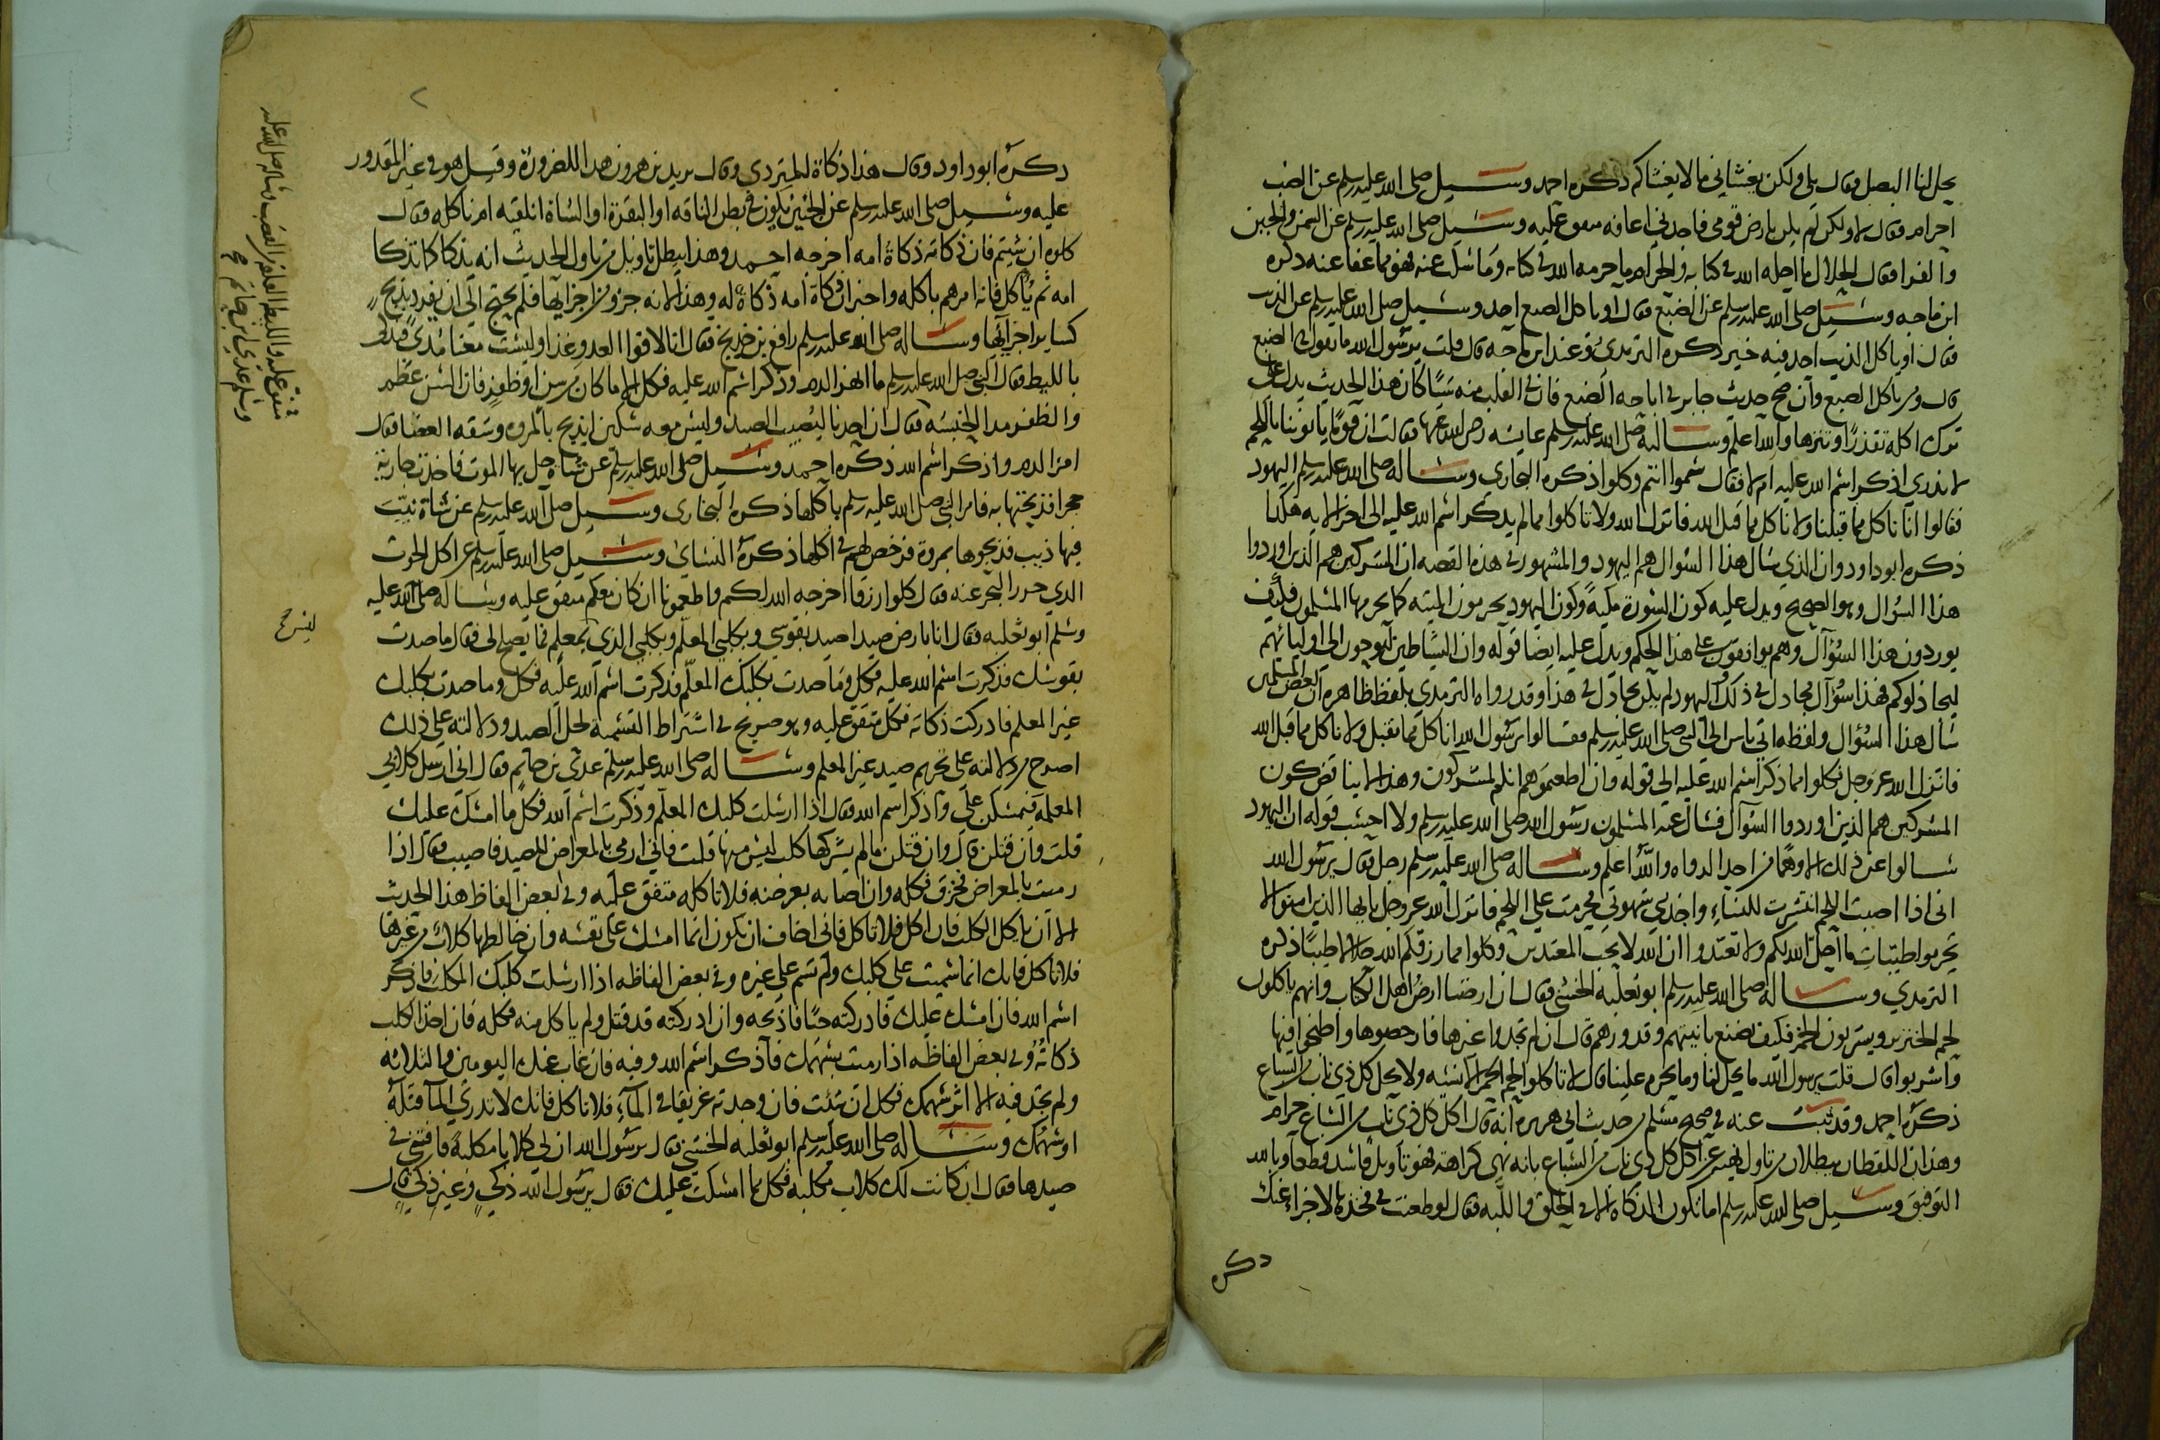 يحل لنا البصل فقال بلي ولكن يغشاني ما لا يغشاكم ذكره احمد وسيل صلى الله عليه وسلم عن الضب
احرام فقال لا ولكن لم يكن بارض قومي فاجدني اعافه متفق عليه وسيل صلى الله عليه وسلم عن السمن والجبن
والفرا فقال الحلال ما احله الله في كتابه والحرام ما حرمه الله في كتابه وما سكت عنه فهو مما عفا عنه ذكره
ابن ماجه وسيل صلى الله عليه وسلم عن الضبع فقال او ياكل الضبع احد وسيل صلى الله عليه وسلم عن الذيب
فقال او ياكل الذيب احد فيه خير ذكره الترمذي وعند ابن ماجه قال قلت يرسول الله ما تقول في الضبع
قال ومن ياكل الضبع وان صح حديث جابر في اباحه الضبع فان في القلب منه شيا كان هذا الحديث يدل علي
ترك اكله تقذرا وتنزها والله اعلم وسالته صلى الله عليه وسلم عايشه رضي الله عنها فقالت ان قوما ياتوننا باللحم
لا ندري اذكر اسم الله عليه ام لا فقال سموا انتم وكلوا ذكره البخاري وساله صلى الله عليه وسلم اليهود
فقالوا انا ناكل مما قتلنا ولا ناكل مما قتل الله فانزل الله ولا تاكلوا مما لم يذكر اسم الله عليه الى اخر الايه هكذا
ذكره ابو داود وان الذي سال هذا السوال هم اليهود والمشهور في هذه القصه ان المشركين هم الذين اوردوا
هذا السوال وهو الصحيح ويدل عليه كون السورة مكية وكون اليهود يحرمون الميته كما يحرمها المسلمون فكيف
يوردون هذا السؤال وهم يوافقون على هذا الحكم ويدل عليه ايضا قوله وان الشياطين ليوحون الى اوليائهم
ليجادلوكم فهذا سؤال مجادل في ذلك واليهود لم تكن تجادل في هذا وقد رواه الترمذي بلفظ ظاهره ان بعض المسلمين
سال هذا السؤال ولفظه اتي ناس الى النبي صلى الله عليه وسلم فقالوا يرسول الله اناكل مما نقتل ولا ناكل مما قتل الله
فانزل الله عز وجل فكلوا مما ذكر اسم الله عليه الى قوله وان اطعتموهم انكم لمشركون وهذا لا يناقض كون
المشركين هم الذين اوردوا السؤال فسال عنه المسلمون رسول الله صلى الله عليه وسلم ولا احسب قوله ان اليهود
سالوا عن ذلك الا وهما من احد الرواه والله اعلم وساله صلى الله عليه وسلم رجل فقال يرسول الله
اني اذا اصبت اللحم انتشرت للنساء واخذتني شهوتي فحرمت علي اللحم فانزل الله عز وجل يايها الذين امنوا لا
تحرموا طيبات ما احل الله لكم ولا تعتدوا ان الله لا يحب المعتدين وكلوا مما رزقكم الله حلالا طيبا ذكره
الترمذي وساله صلى الله عليه وسلم ابو ثعلبة الخشني فقال ان ارضنا ارض اهل الكتاب وانهم ياكلون
لحم الخنزير ويشربون الخمر فكيف نصنع بانيتهم وقدورهم قال ان لم تجدوا غيرها فارحضوها واطبخوا فيها
واشربوا قال قلت يرسول الله ما يحل لنا وما يحرم علينا قال لا تاكلوا لحم الحمر الانسيه ولا يحل كل ذي ناب من السباع
ذكره احمد وقد ثبت عنه في صحيح مسلم من حديث ابي هريره انه قال اكل كل ذي ناب من السباع حرام
وهذان اللفظان يبطلان من تاول نهيه عن اكل كل ذي ناب من السباع بانه نهي كراهة فهو تاويل فاسد قطعا وبالله
التوفيق وسيل صلى الله عليه وسلم اما تكون الذكاة الا في الحلق واللبه فقال لو طعنت في فخذها لاجزا عنك
ذكره
ذكره ابو داود وقال هذا ذكاة المتردي وقال يزيد بن هرون هذا للضرورة وقيل هو في غير المقدور
عليه وسيل صلى الله عليه وسلم عن الجنين يكون في بطن الناقه او البقرة او الشاة انلقيه ام ناكله فقال
كلوه ان شيتم فان ذكاته ذكاة امه اخرجه احمد وهذا يبطل تاويل من تاول الحديث انه يذكا كما تذكا
امه ثم يؤكل فانه امرهم باكله واخبر ان ذكاة امه ذكاة له وهذا لانه جزو من اجزايها فلم يحتج الى ان يفرد بذبح
كساير اجزايها وساله صلى الله عليه وسلم رافع بن خديج فقال انا لاقوا العدو غدا وليست معنا مدي فنذكي
بالليط فقال النبي صلى الله عليه وسلم ما انهر الدم وذكر اسم الله عليه فكل الا ما كان من سن او ظفر فان السن عظم
والظفر مدا الحبشه فقال ان احدنا ليصيب الصيد وليس معه سكين ايذبح بالمروه وشقه العصا فقال
امر الدم واذكر اسم الله ذكره احمد وسيل صلى الله عليه وسلم عن شاة حل بها الموت فاخذت جارية
حجرا فذبحتها به فامر النبي صلى الله عليه وسلم باكلها ذكره البخاري وسيل صلى الله عليه وسلم عن شاة نيب
فيها ذيب فذبحوها بمروة فرخص لهم في اكلها ذكره النسائي وسيل صلى الله عليه وسلم عن اكل الحوت
الذي جزر البحر عنه فقال كلوا رزقا اخرجه الله لكم واطعمونا ان كان معكم متفق عليه وساله صلى الله عليه
وسلم ابو ثعلبه فقال انا بارض صيد اصيد بقوسي وبكلبي المعلم وبكلبي الذي ليس بمعلم فما يصلح لي فقال ما صدت
بقوسك فذكرت اسم الله عليه فكل وما صدت بكلبك المعلم فذكرت اسم الله عليه فكل وما صدت بكلبك
غير المعلم فادركت ذكاته فكل متفق عليه وهو صريح في اشتراط التسمية لحل الصيد ودلالته على ذلك
اصرح من دلالته على تحريم صيد غير المعلم وساله صلى الله عليه وسلم عدي بن حاتم فقال اني ارسل كلابي
المعلمة فيمسكن علي واذكر اسم الله فقال اذا ارسلت كلبك المعلم وذكرت اسم الله فكل ما امسك عليك
قلت وان قتلن قال وان قتلن ما لم يشركها كلب ليس منها قلت فاني ارمي بالمعراض للصيد فاصيب فقال اذا
رميت بالمعراض فخزق فكله وان اصابه بعرضه فلا تاكله متفق عليه وفي بعض الفاظ هذا الحديث
الا ان ياكل الكلب فان اكل فلا تاكل فاني اخاف ان يكون انما امسك على نفسه وان خالطها كلاب من غيرها
فلا تاكل فانك انما سميت على كلبك ولم تسم على غيره وفي بعض الفاظه اذا ارسلت كلبك المكلب فاذكر
اسم الله فان امسك عليك فادركته حيا فاذبحه وان ادركته قد قتل ولم ياكل منه فكله فان اخذ الكلب
ذكاته وفي بعض الفاظه اذا رميت بسهمك فاذكر اسم الله وفيه فان غاب عنك اليومين والثلاثه
ولم تجد فيه الا اثر سهمك فكل ان شئت فان وجدته غريقا في الماء فلا تاكل فانك لا تدري الما قتله
او سهمك وساله صلى الله عليه وسلم ابو ثعلبه الخشني فقال يرسول الله ان لي كلابا مكلبة فافتني في
صيدها فقال ان كانت لك كلاب مكلبه فكل مما امسكت عليك فقال يرسول الله ذكي وغير ذكي قال
متفق عليه والليط الفلقه من القصب وساله صلى الله عليه
وسلم عدي ابن حاتم
ليس صح